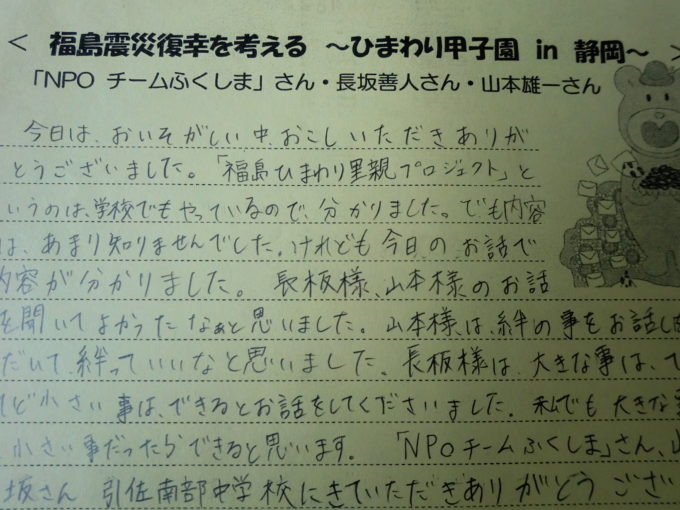 < 福島震災復幸を考える ~ひまわり甲子園 in 静岡~ >
「NPO チームふくしま」さん・長坂善人さん・山本雄一さん
今日は、おいそがしい中、おこしいただきありが
とうございました。「福島ひまわり里親プロジェクト」と
いうのは、学校でもやっているので、分かりました。でも内容
は、あまり知りませんでした。けれども今日のお話で
内容が分かりました。長板様、山本様のお話
を聞いてよかったなぁと思いました。山本様は、絆の事をお話し
だいて、絆っていいなと思いました。長板様は、大きな事は、で
ど小さい事は、できるとお話をしてくださいました。私でも大きな
小さい事だったらできると思います。「NPOチームふくしま」さん、山
坂さん 引佐南部中学校にきていただきありがとうござい